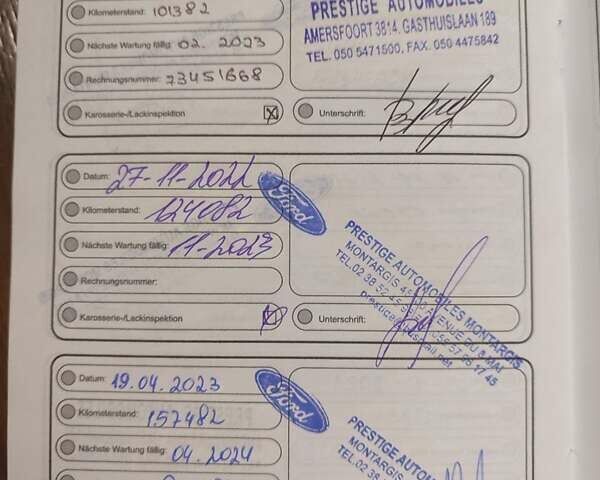 Kilometerstand: 101382
PRESTIGE AUTOMOBILES
AMERSFOORT 3814, GASTHUISLAAN 189
TEL. 050 5471500, FAX. 050 4475842
Nächste Wartung fällig: 02. 2023
Rechnungsnummer: 73451668
Karosserie-/Lackinspektion
Unterschrift:
Datum: 27-11-2022
Kilometerstand: 124082
Nächste Wartung fällig: 11-2023
Rechnungsnummer:
Karosserie-/Lackinspektion
Ford
PRESTIGE AUTOMOBILES MONTARGIS
MONTARGIS AVENUE DU 8 MAI
TEL.02 38 52
Unterschrift:
Datum: 19.04.2023
Kilometerstand: 157482
Nächste Wartung fällig: 04.2024
Ford
PRESTIGE AUTOMOBILES
MONTARGIS
TEL.02 38